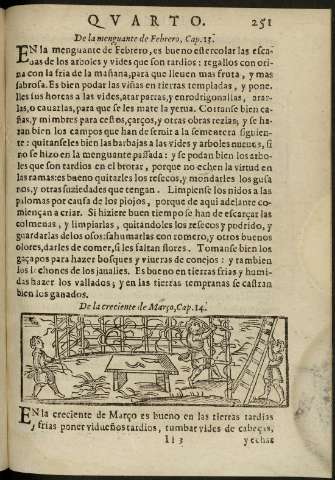 QVARTO. 251
De la menguante de Febrero, Cap. 13.
EN la menguante de Febrero, es bueno estercolar las esca-
uas de los arboles y vides que son tardios: regallos con ori-
na con la fria de la mañana, para que lleuen mas fruta, y mas
sabrosa. Es bien podar las viñas en tierras templadas, y pone-
lles sus horcas a las vides, atar parras, y enrodrigonallas, arar-
las, o cauazlas, para que se les mate la yerua. Cortanse bien ca-
ñas, y mimbres para cestos, çarços, y otras obras rezias; y se ha-
zan bien los campos que han de seruir a la sementera siguien-
te: quitanseles bien las barbajas a las vides y arboles nueuos, si
no se hizo en la menguante passada: y se podan bien los arbo-
les que son tardios en el brotar, porque no echen la virtud en
las ramas: es bueno quitarles los resecos, y mondarles los gusa
nos, y otras suziedades que tengan. Limpiense los nidos a las
palomas por causa de los piojos, porque de aqui adelante co-
miençan a criar. Si hiziere buen tiempo se han de escarçar las
colmenas, y limpiarlas, quitandoles los resecos y podrido, y
guardarlas de los osos: sahumarlas con romero, y otros buenos
olores, darles de comer, si les faltan flores. Tomanse bien los
gaçapos para hazer bosques y viueras de conejos: y tambien
los lechones de los jaualies. Es bueno en tierras frias y humi-
das hazer los vallados; y en las tierras tempranas se castran
bien los ganados.
De la creciente de Março, Cap. 14.
EN la creciente de Março es bueno en las tierras tardias
y frias poner vidueños tardios, tumbar vides de cabeças,
Ii 3 y echar